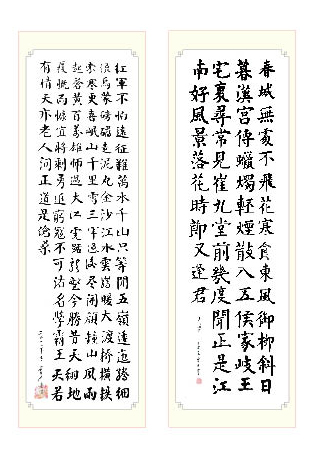 春城無處不飛花寒食東風御柳斜日
暮漢宮傳蠟燭輕煙散入五侯家岐王
宅裏尋常見崔九堂前幾度聞正是江
南好風景落花時節又逢君
紅軍不怕遠征難萬水千山只等閒五嶺逶迤騰細
浪烏蒙磅礴走泥丸金沙江水雲崖暖大渡橋橫鐵
索寒更喜岷山千里雪三軍過後盡開顏鐘山風雨
起蒼黃百萬雄師過大江虎踞龍盤今勝昔天翻地
覆慨而慷宜將剩勇追窮寇不可沽名學霸王天若
有情天亦老人間正道是滄桑